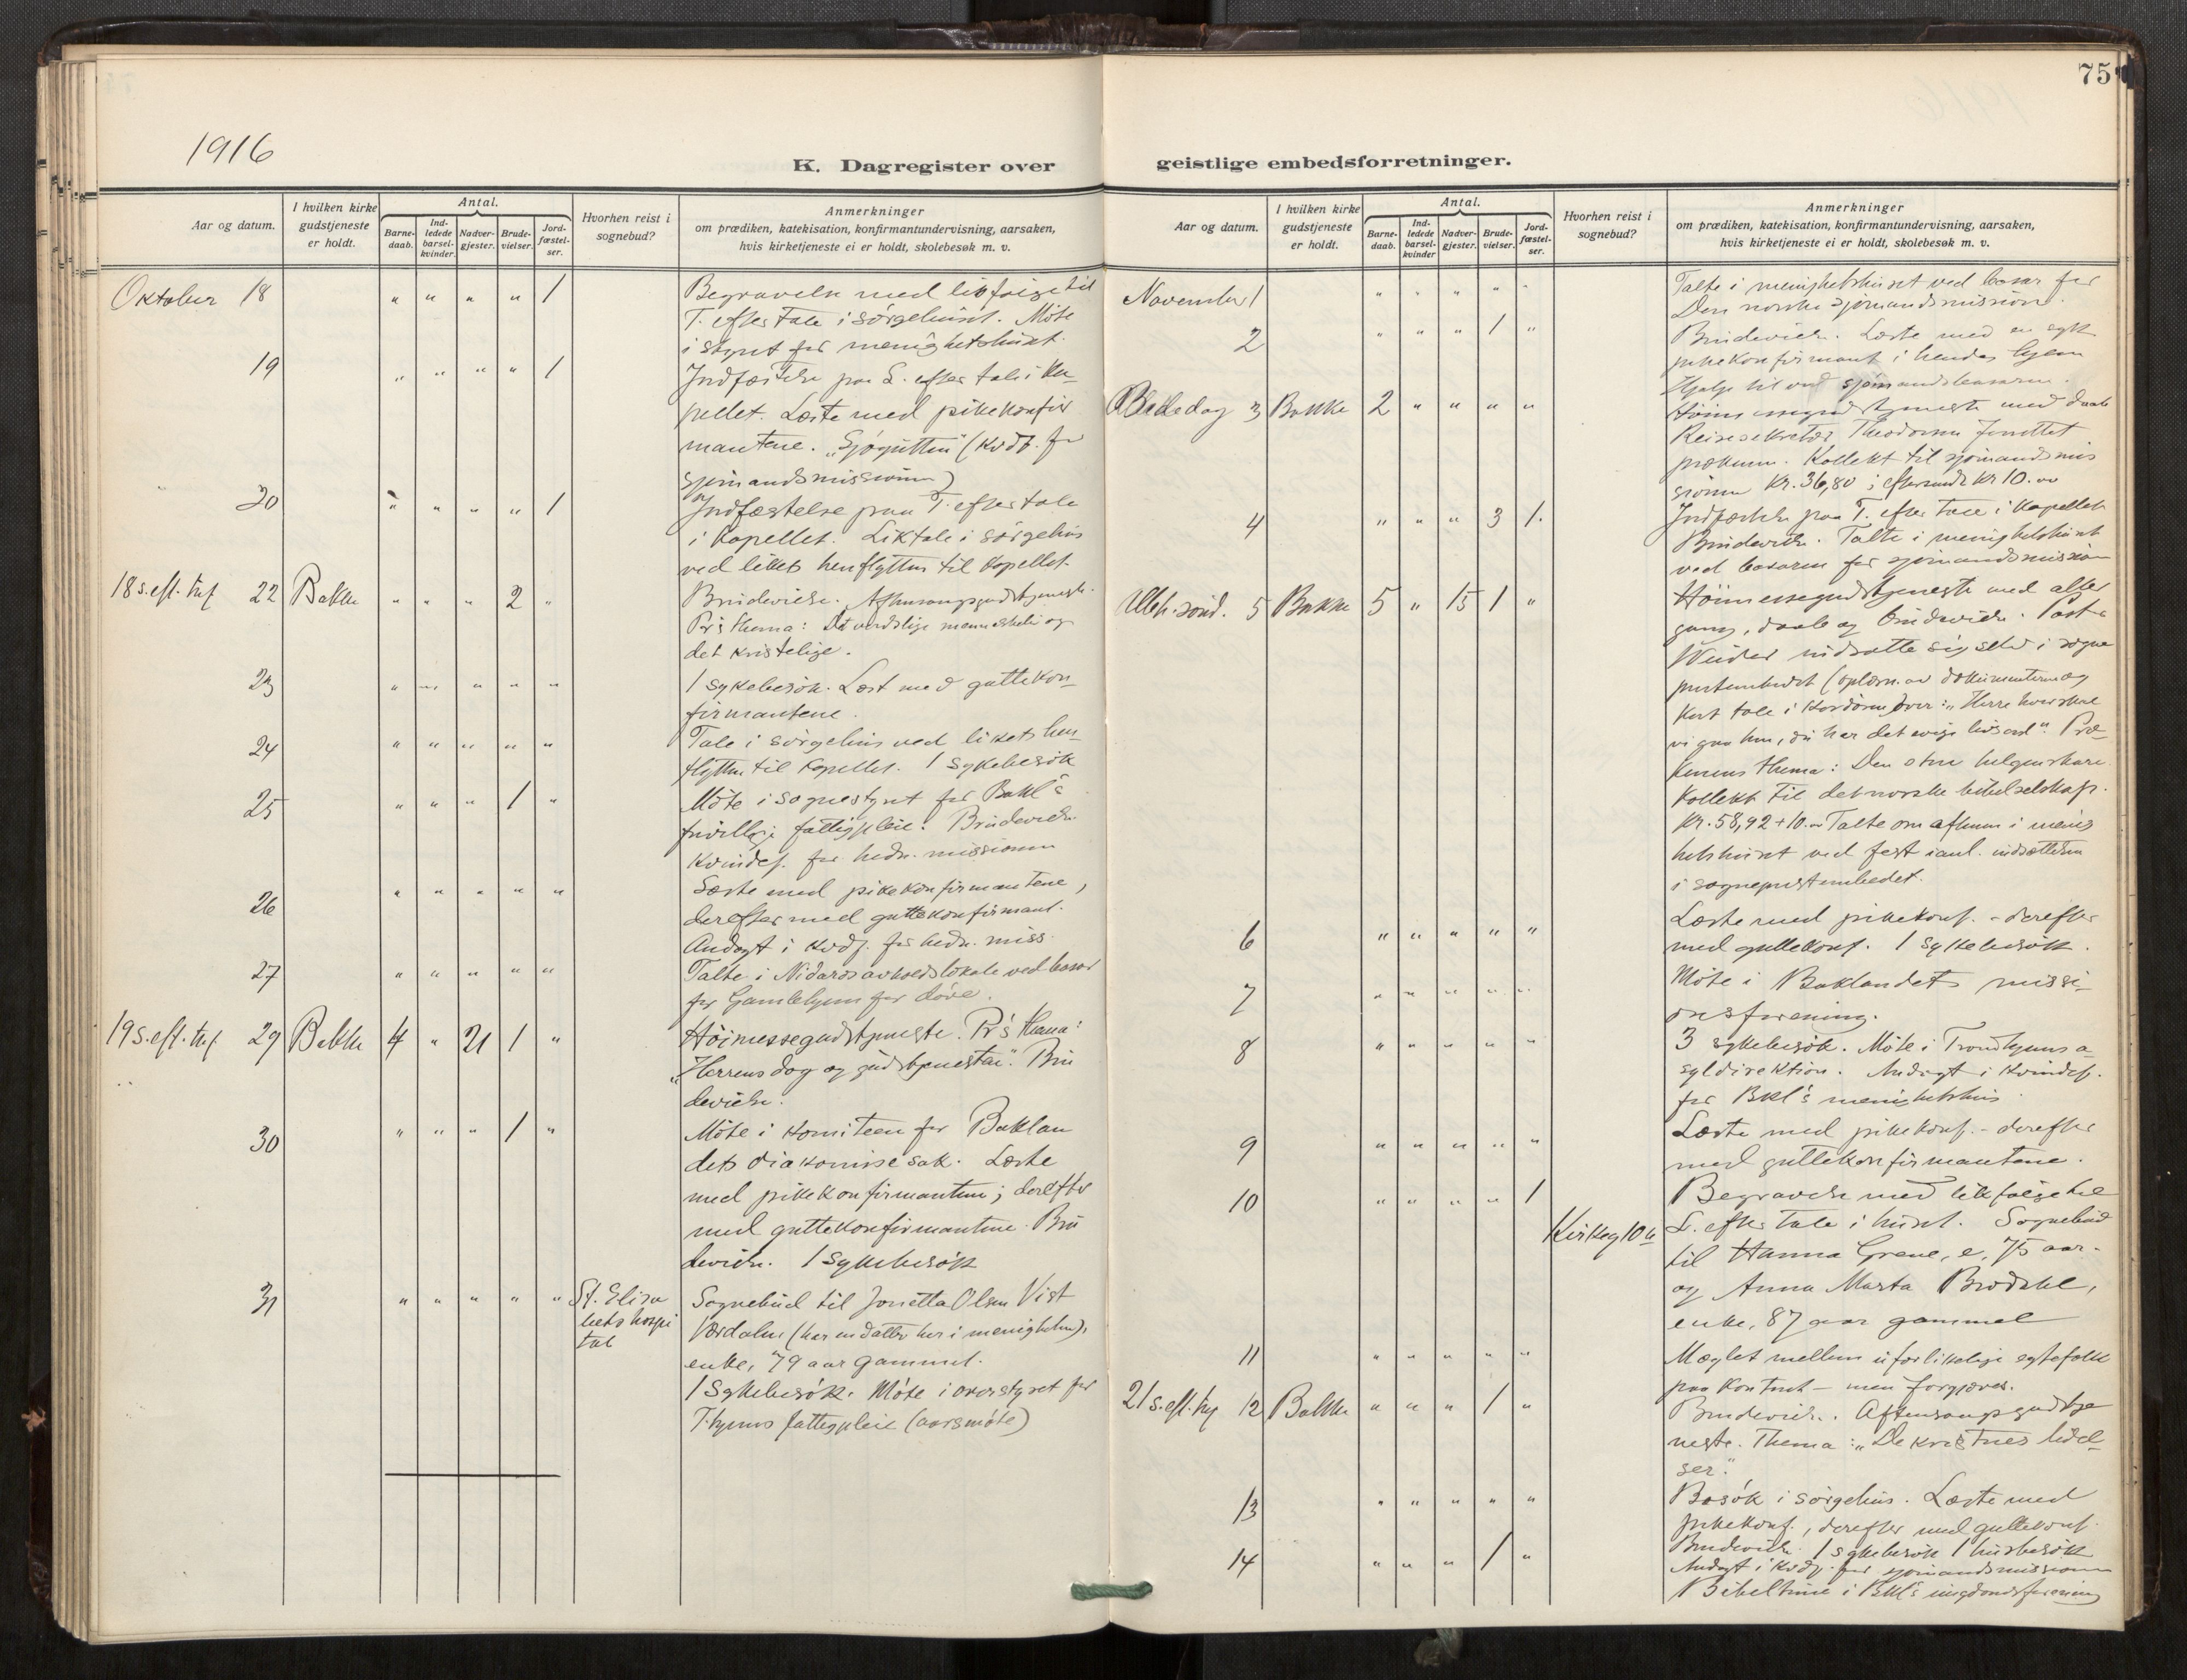 75
1916
K. Dagregister over geistlige embedsforretninger.
Aar og datum. I hvilken kirke gudstjeneste er holdt. Antal. Barnedaab. Indledede barselkvinder. Nadvergjester. Brudevielser. Jordfæstelser. Hvorhen reist i sognebud? Anmerkninger om prædiken, katekisation, konfirmantundervisning, aarsaken, hvis kirketjeneste ei er holdt, skolebesøk m. v.
Oktober 18 " " " " 1 Begravelse med likfølge til
T. efter tale i sørgehuset. Møte
i styret for menighetshuset.
19 " " " " 1 Jordfæstelse paa L. efter tale i Ka-
pellet. Læste med pikekonfir
mantene. "Sjøgutten" (kvdf. for
sjømandsmissionen)
20 " " " " 1 Jordfæstelse paa T. efter tale
i Kapellet. Liktale i sørgehus
ved likets henflytten til Kapellet.
18 s. eft. tref 22 Bakke " " " 2 " Brudevielse. Aftensangsgudstjeneste.
Pr's thema: Det verdslige menneskeliv og
det kristelige.
23 " " " " " 1 sykebesøk. Læst med guttekon-
firmantene.
24 " " " " " Tale i sørgehus ved likets hen-
flytten til Kapellet. 1 sykebesøk
25 " " " 1 " Møte i sognestyret for Bakl's
frivillige fattigpleie. Brudevielse
Kvindef. for hedn. missionen
26 " " " " " Læste med pikekonfirmantene,
derefter med guttekonfirmant.
Andagt i kvdf. for hedn. miss.
27 " " " " " Talte i Nidaros avholdslokale ved basar
for Gamlehjem for døve.
19 s. eft. tref. 29 Bakke 4 " 21 1 " Høimessegudstjeneste. Pr's thema:
"Herrens dag og gudstjenesten". Bru
devielse.
30 " " " 1 " Møte i komiteen for Baklan
dets diakonisse sak. Læste
med pikekonfirmantene; derefter
med guttekonfirmantene. Bru
devielse. 1 sykebesøk
31 " " " " " St. Elisa
bets hospi
tal Sognebud til Jonetta Olsen Vist
Værdalen (har en datter her i menigheten),
enke, 79 aar gammel.
1 Sykebesøk. Møte i overstyret for
T.hjems fattigpleie (aarsmøte)
Aar og datum. I hvilken kirke gudstjeneste er holdt. Antal. Barnedaab. Indledede barselkvinder Nadvergjester. Brudevielser. Jordfæstelser. Hvorhen reist i sognebud? Anmerkninger om prædiken, katekisation, konfirmantundervisning, aarsaken, hvis kirketjeneste ei er holdt, skolebesøk m. v.
November 1 " " " " " Talte i menighetshuset ved basar for
Den norske sjømandsmission.
2 " " " 1 " Brudevielse. Læste med en syk
pikekonfirmant i hendes hjem
Hjalp til ved sjømandsbasaren.
Bededag 3 Bakke 2 " " " " Høimessegudstjeneste med daab
Reisesekretær Theodorsen forrettet
prækenen. Kollekt til sjømandsmis
sionen Kr. 36,80; eftersendt Kr 10.00
4 " " " 3 1. Jordfæstelse paa T. efter tale i Kapellet
Brudevielse. Talte i menighetshuset
ved basaren for sjømandsmission
Alleh. sønd. 5 Bakke 5 " 15 1 " Høimessegudstjeneste med alter
gang, daab og brudevielse.
indsatte sig selv i sogne
prestembedet (oplæsn. av dokumenterne og
kort tale i kordøren over: "Herre hvor skal
vi gaa hen, du har det evige livs ord". Præ-
kenens thema: Den store helgenskare.
Kollekt til det norske bibelselskap.
Kr. 58,92 + 10.00 Talte om aftenen i menig
hetshuset ved fest i anl. indsættelsen
i sogneprestembedet.
6 " " " " " Læste med pikekonf. - derefter
med guttekonf. 1 sykebesøk.
7 " " " " " Møte i Baklandets missi-
onsforening.
8 " " " " " 3 sykebesøk. Møte i Trondhjems a-
syldirektion. Andagt i kvindef.
for Bkl's menighetshus
9 " " " " " Læste med pikekonf. - derefter
med guttekonfirmantene.
10 " " " " 1 Begravelse med likfølge til
Kirkeg 10 a L. efter tale i huset. Sognebud
til Hanna Grene, e, 75 aar.
og Anna Marta Brodahl,
enke, 87 aar gammel
11 " " " " " Mæglet mellem uforlikelige egtefolk
paa kontoret - men forgjæves.
21 s. eft. tref 12 Bakke " " " 1 " Brudevielse. Aftensangsgudstje
neste. Thema: "De kristnes lidel-
ser."
13 " " " " " Besøk i sørgehus. Læste med
pikekonf., derefter med guttekonf.
14 " " " 1 " Brudevielse. 1 sykebesøk 1 husbesøk
Andagt i kvdf. for sjømandsmissionen
Bibeltime i Bkl's ungdomsforening